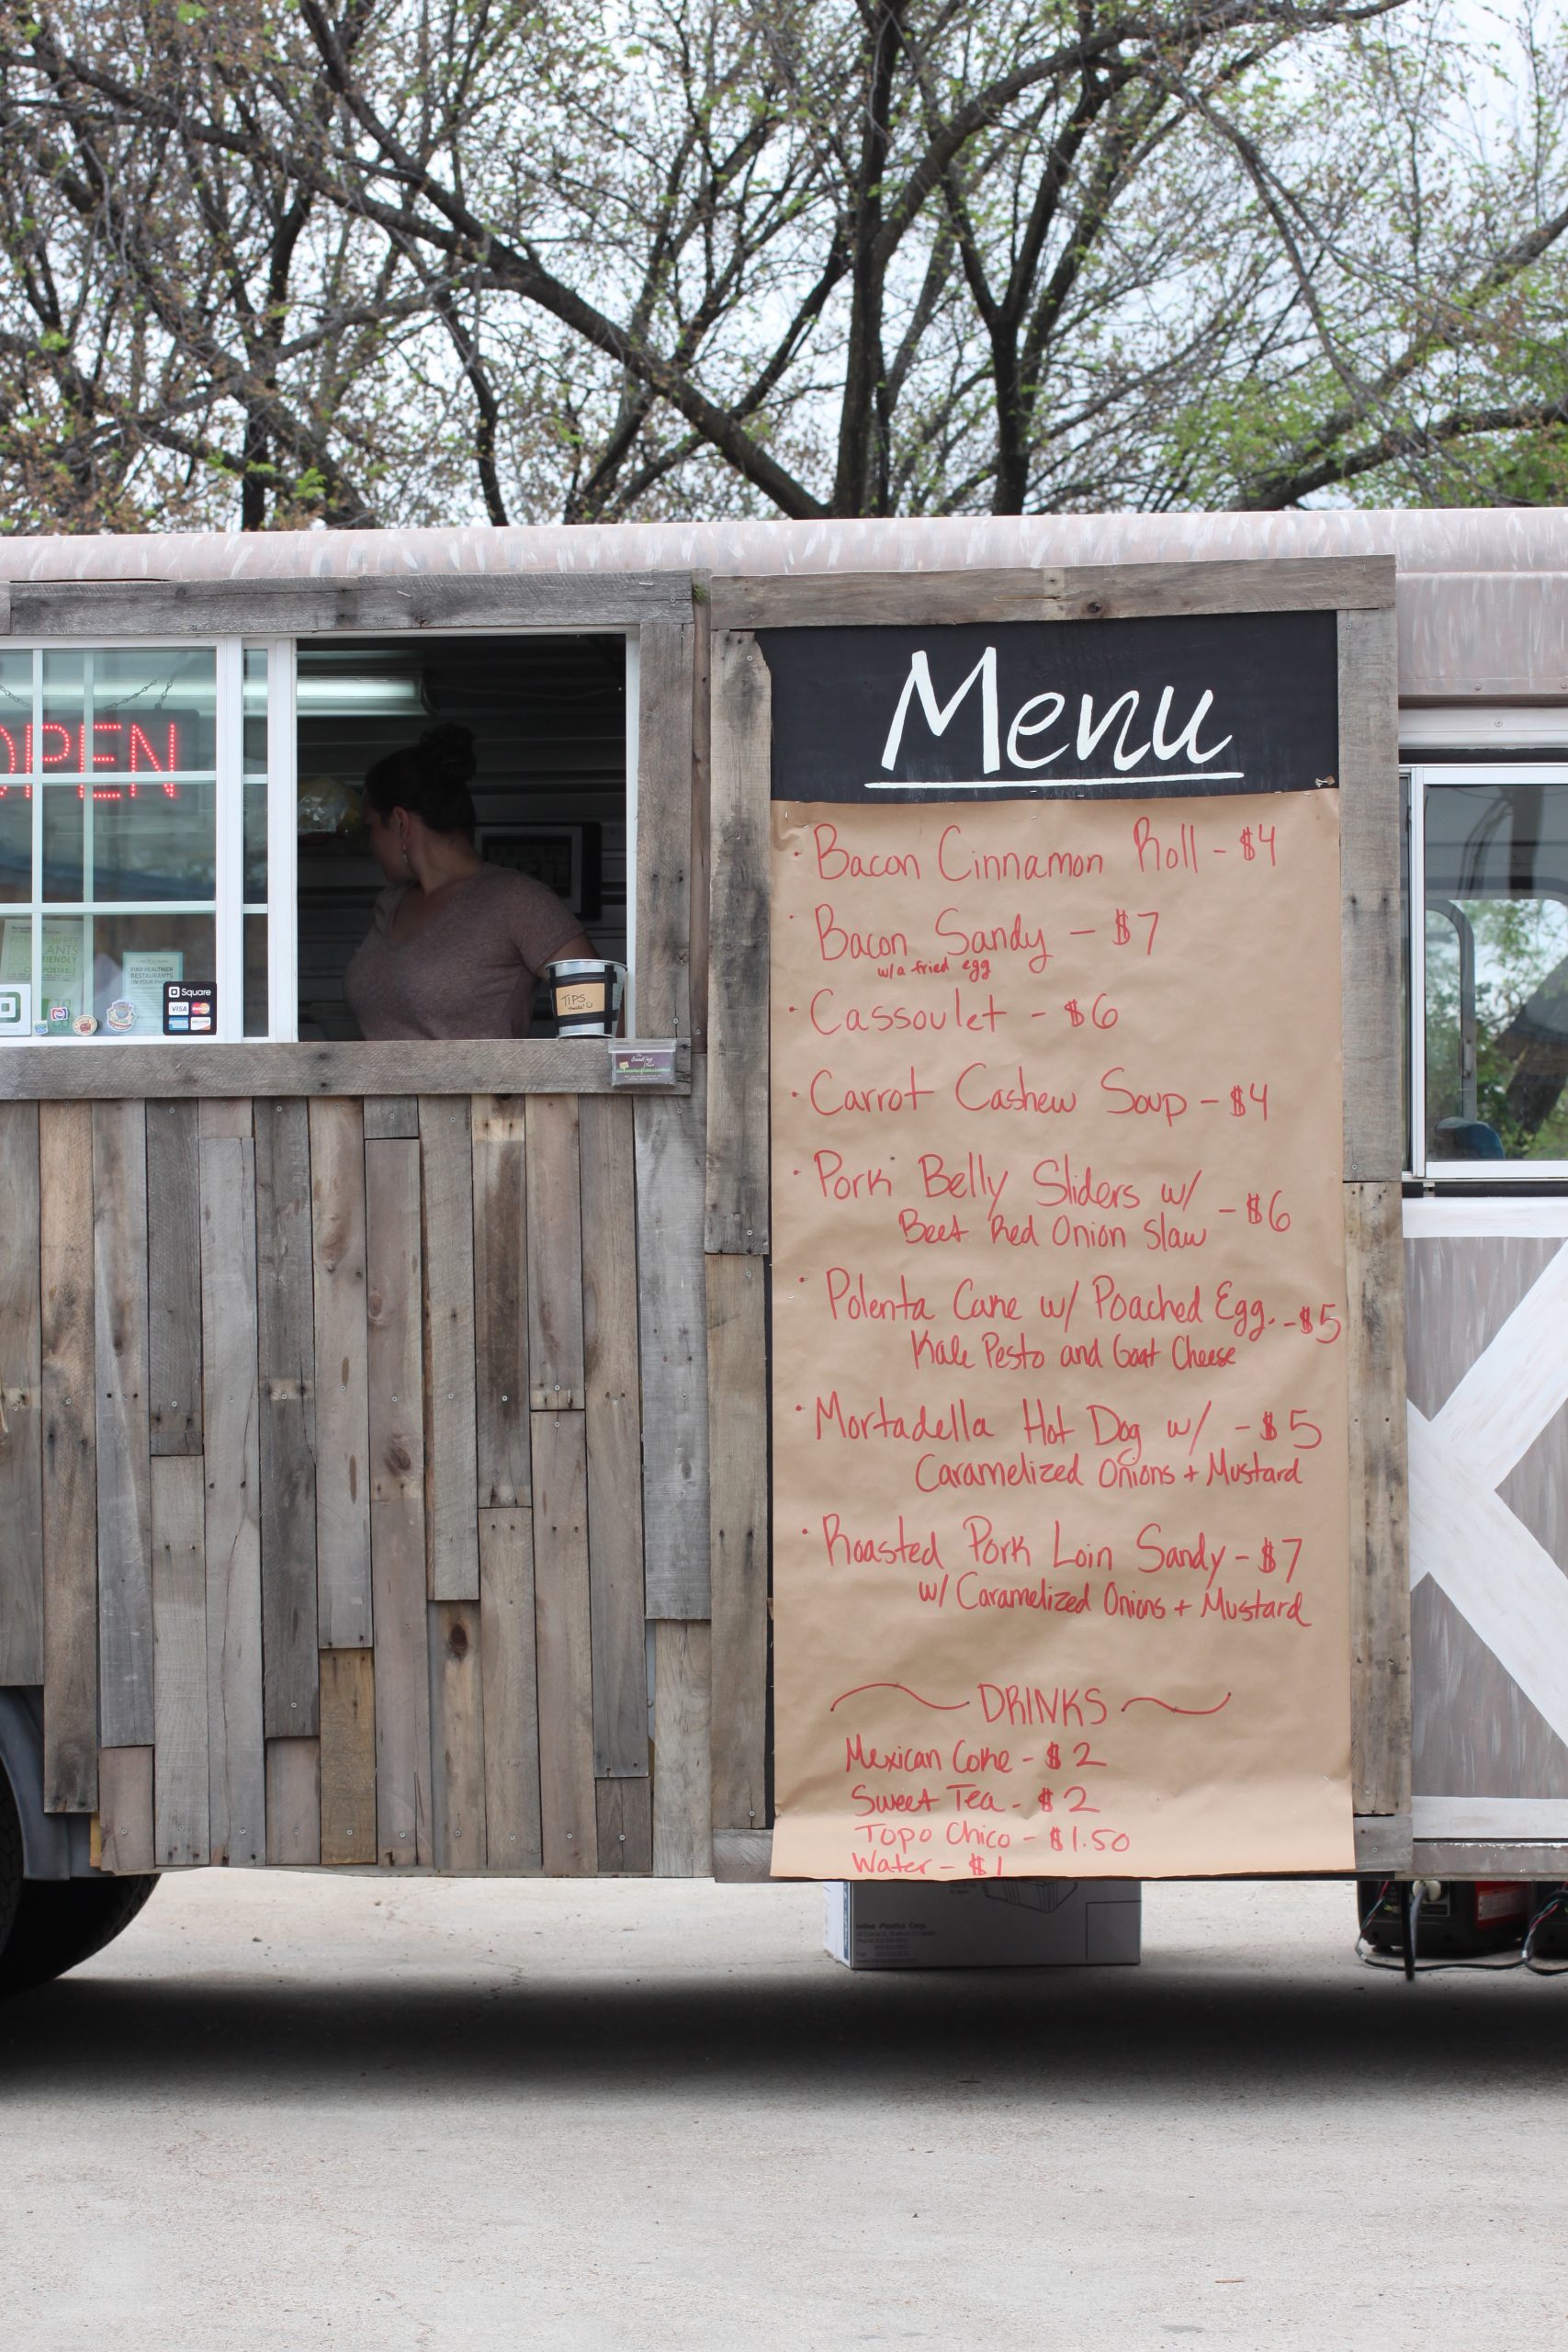 Menu
Bacon Cinnamon Roll - $4
Bacon Sandy - $7
w/a fried egg
Cassoulet - $6
Carrot Cashew Soup - $4
Pork Belly Sliders w/ - $6
Beet Red Onion Slaw
Polenta Cake w/ Poached Egg. - $5
Kale Pesto and Goat Cheese
Mortadella Hot Dog w/ - $5
Caramelized Onions + Mustard
Roasted Pork Loin Sandy - $7
w/ Caramelized Onions + Mustard
DRINKS
Mexican Coke - $2
Sweet Tea - $2
Topo Chico - $1.50
Water - $1
OPEN
FIND HEALTHIER
RESTAURANTS
Square
VISA
TIPS